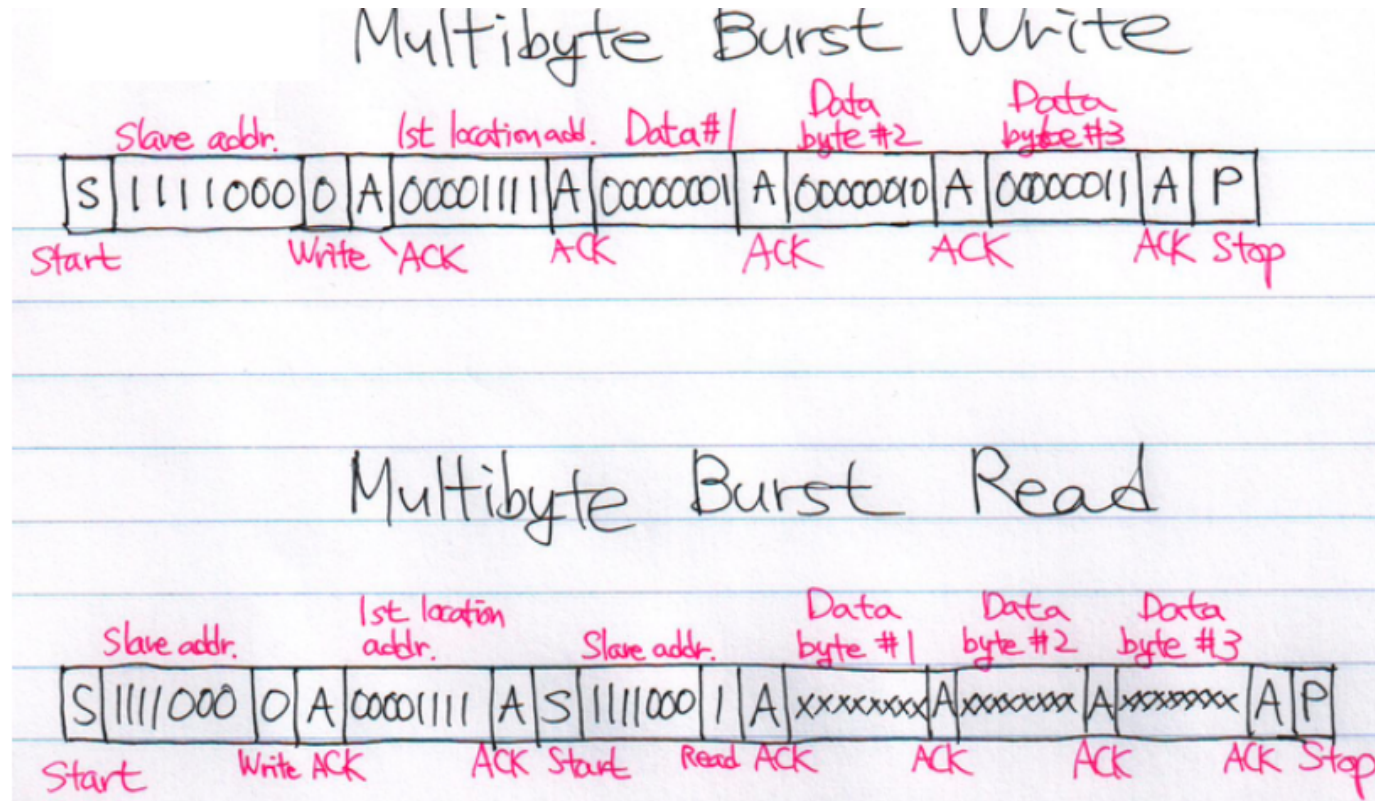 Multibyte Burst Write
Data Data
Slave addr. 1st location add. Data#1 byte #2 byte #3
S 1111000 0 A 00001111 A 00000001 A 00000010 A 00000011 A P
Start Write ACK ACK ACK ACK ACK Stop
Multibyte Burst Read
1st location Data Data Data
Slave addr. addr. Slave addr. byte #1 byte #2 byte #3
S 1111000 0 A 00001111 A S 1111000 1 A xxxxxxxx A xxxxxxxx A xxxxxxxx A P
Start Write ACK ACK Start Read ACK ACK ACK ACK Stop